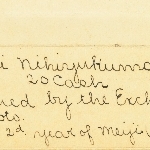 i Nihizukuma
20 Cash
ned by the Exch
ots.
2d year of Meiji